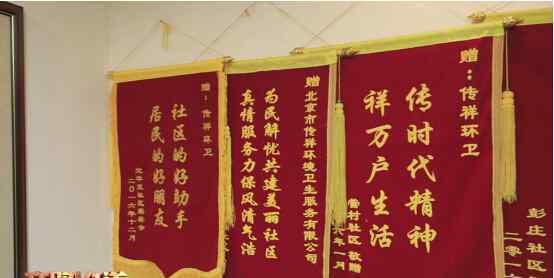 赠：传祥环卫
社区的好助手
居民的好朋友
二〇一六年十二月
赠北京市传祥环境卫生服务有限公司
为民解忧共建美丽社区
真情服务力保风清气洁
赠：传祥环卫
传时代精神
祥万户生活
营村社区敬赠
六年一月
彭庄社区
二〇一